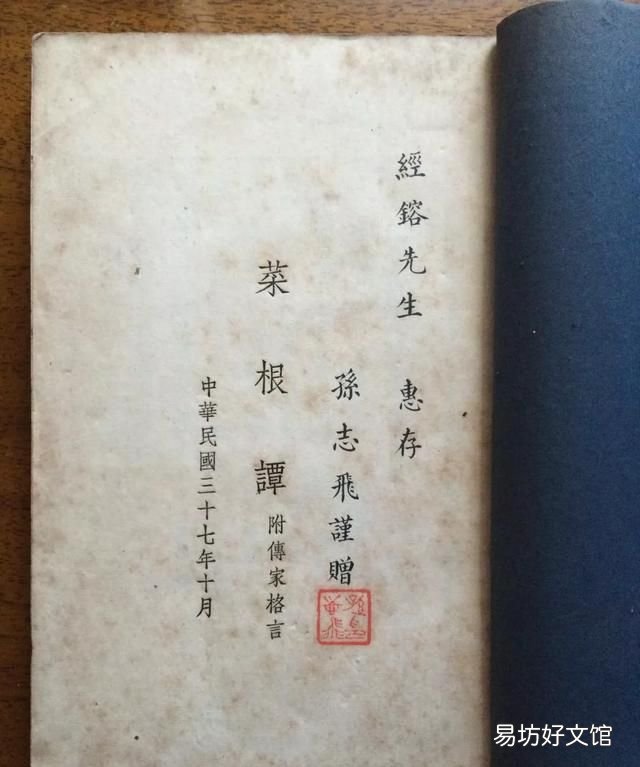 經鎔先生 惠存
孫志飛謹贈
菜根譚 附傳家格言
中華民國三十七年十月
易坊好文馆